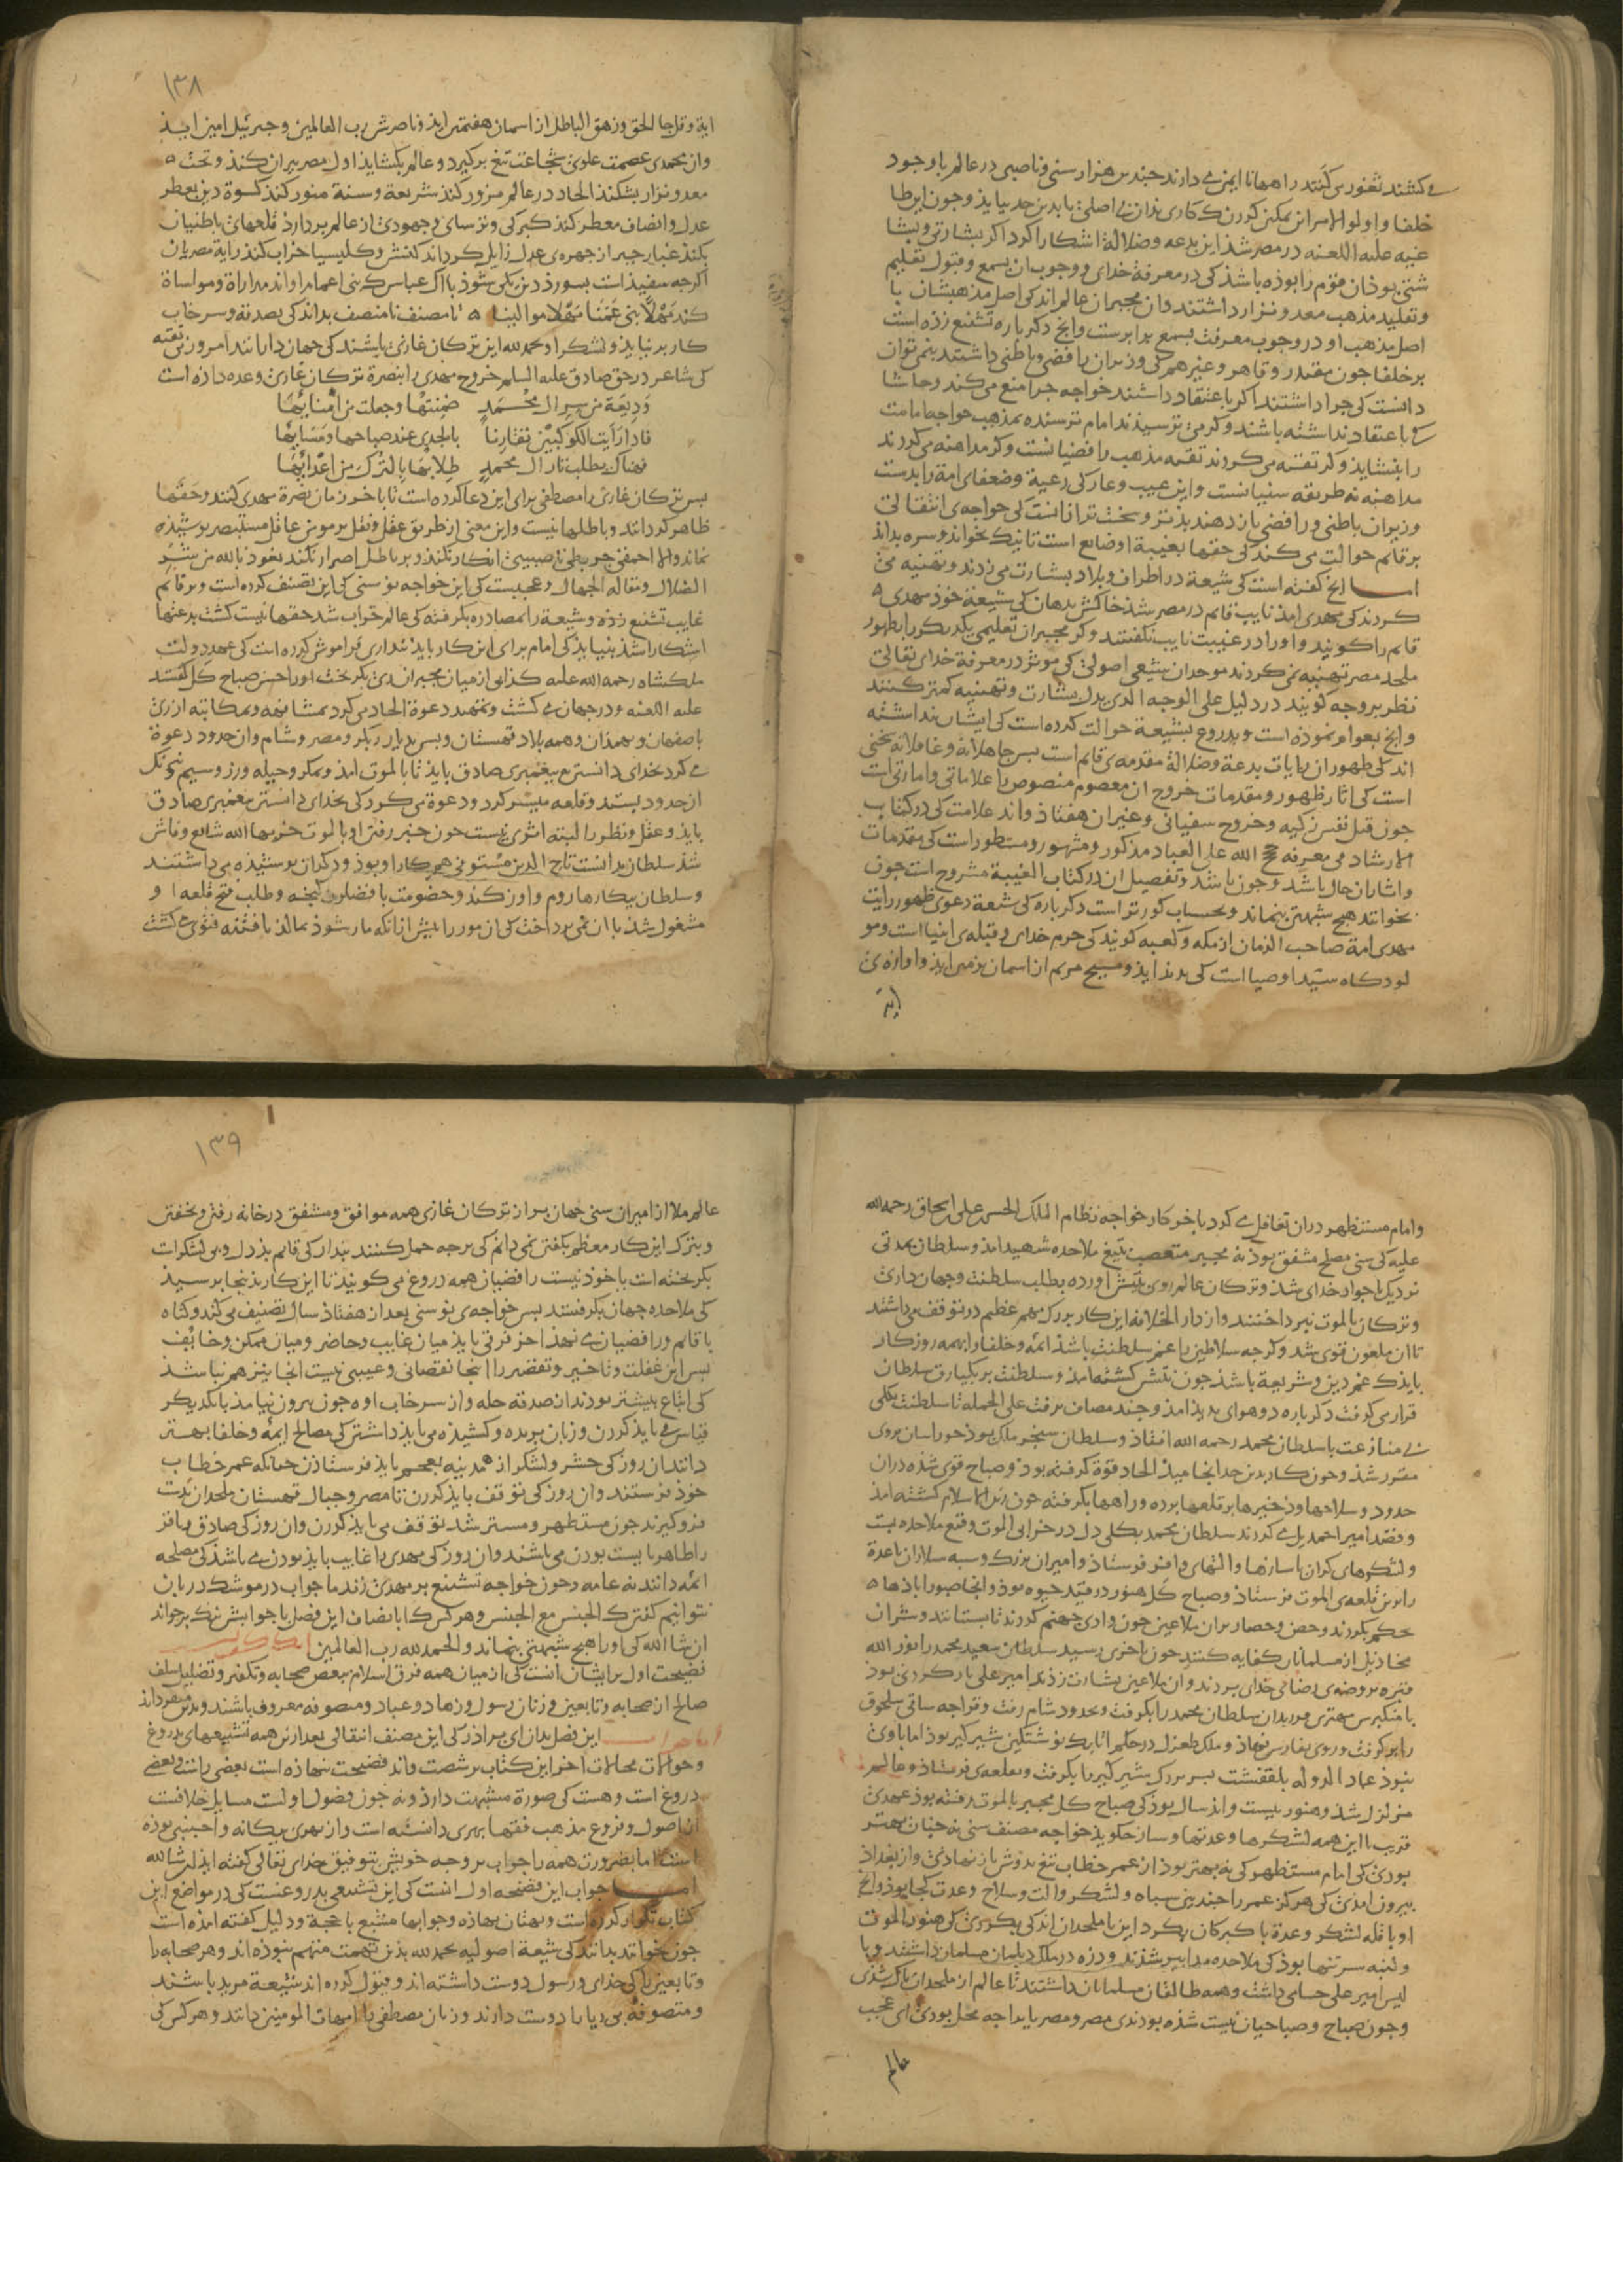 می کشند ثغور می کنند راهها نا ایمن می دارند چندین هزار سنی و ناصبی در عالم با وجود
خلفا و اولوا الامر این ممکن کردن که کاری بدان بی اصلی بابدین حد بیاید و چون ابن طا
علیه اللعنه در مصر شد این بدعه و ضلالة آشکارا کرد اکر بشارتی و بشا
شتی بوذ آن قوم را بوذه باشذ کی در معرفة خدای و وجوب آن بسمع و قبول تعلیم
و تقلید مذهب معد و نزار داشتند و آن مجبران عالم اند کی اصل مذهبشان با
اصل مذهب او در وجوب معرفت بسمع برابرست و انج دکر باره تشنیع زذه است
بر خلفا جون مقتدر و قاهر و غیرهم کی وزیران رافضی و باطنی داشتند نمی توان
دانست کی جرا داشتند اکر با عتقاد داشتند خواجه جرا منع می کند و حاشا
کی با عتقاد نداشته باشند و کر می ترسیذند امام ترسنده بمذهب خواجه امامت
را بنشاید و کر تقیه می کردند تقیه مذهب رافضیانست و کر مداهنه می کردند
مداهنه نه طریقه سنیانست و این عیب و عار کی رعیة و ضعفای امة را بدست
وزیران باطنی و رافضی باز دهند بذتر و سخت تر ازانست کی خواجه ی انتقالی
بر قائم حوالت می کند کی حقها بغیبة او ضایع است تا نیک بخواند و سره بداند
اما انج کفته است کی شیعة در اطراف بلاد بشارت می زدند و تهنیه می
کردند کی مهدی آمذ نایب قائم در مصر شذ خاکش بدهان کی شیعة خوذ مهدی
قائم را کویند و او را در غیبت نایب نکفتند و کر مجبران تعلیمی یکدیکر را بظهور
ملحد مصر تهنیه می کردند موحدان شیعی اصولی کی موثر در معرفة خدای تعالی
نظر بر وجه کویند در دلیل علی الوجه الذی یدل بشارت و تهنیه کمتر کنند
و انج بعوام نموذه است و بدروغ بشیعة حوالت کرده است کی ایشان بنداشته
اند کی ظهور آن رایات بدعة و ضلالة مقدمه ی قائم است بس جاهلانه و غافلانه سخنی
است کی آثار ظهور و مقدمات خروج آن معصوم منصوص را علاماتی و امارتی است
جون قتل نفس زکیه و خروج سفیانی و غیر آن هفتاذ و اند علامت کی در کتاب
الارشاد فی معرفه حجج الله علی العباد مذکور و مشهور و مسطور است کی مقدمات
و اشارات آن حال باشد و جون باشد و تفصیل آن در کتاب الغیبة مشروح است جون
بخوانند هیچ شبهتی بنماند و بحساب کور تر است دکر باره کی شیعة دعوی ظهور رایت
مهدی امة صاحب الزمان از مکه و کعبه کویند کی حرم خدای و قبله ی انبیا است و مو
لودکاه سید اوصیا است کی بدید آید و مسیح مریم از آسمان بزمین آید و آوازه ی
ایة
۱۳۸
ایة و قل جا الحق و زهق الباطل از آسمان هفتمین آید و ناصرش رب العالمین و جبرئیل امین آیذ
وان محمدی عصمت علوی شجاعت تیغ برکیرد و عالم بکشاید اول مصر بیران کند و تخت
معد و نزار بشکند الحاد در عالم مزور کند شریعة و سنة منور کند کسوة دین بعطر
عدل و انصاف معطر کند کبرکی و ترسای و جهودی از عالم بردارد قلعهای باطنیان
بکند غبار جبر از جهره ی عدل زایل کرداند کنش و کلیسیا خراب کند رایة مصریان
اکرچه سفیذ است بسوزد دین یکی شوذ با آل عباس کی بنی اعمام او اند مداراة و مواساة
کند مهلا بنی عمنا مهلا موالینا تا مصنف نامنصف بداند کی بصدقه و سرخاب
کار بر نیاید و لشکر او بحمد لله این ترکان غازی باشند کی جهان دارانند امروز بی تقیه
کی شاعر در حق صادق علیه السلم خروج مهدی را بنصرة ترکان غازی وعده داذه است
ودیعة من سر آل محمد ضمنتها وجعلت من امنائها
فاذا رأیت الکوکبین تقارنا بالجدی عند صباحها ومسائها
فهناک یطلب ثار آل محمد طلابها بالترک من اعدائها
بس ترکان غازی را مصطفی برای این دعا کرده است تا با خر زمان نصرة مهدی کنند و حقها
ظاهر کردانند و باطلها نیست و این معنی از طریق عقل و نقل بر مومن عاقل مستبصر بوشیذه
نماند و الا احمقی جبرئی ناصبیی انکار نکند و بر باطل اصرار نکند نعوذ بالله من شر
الضلال و مقاله الجهال و عجبست کی این خواجه نو سنی کی این تصنیف کرده است و بر قائم
غایب تشنیع زذه و شیعة را بمصادره بکرفته کی عالم خراب شد حقها نیست کشت بدعتها
آشکارا شد بنیاید کی امام برای این کار باید بنداری فراموش کرده است کی عهد دولت
ملکشاه رحمه الله علیه کذابی از میان مجبران ری بکریخت او را حسن صباح کل کفتند
علیه اللعنه و در جهان می کشت و تمهید دعوة الحاد می کرد بمشافهه و بمکاتبه از ری
باصفهان و بهمذان و همه بلاد قهستان و بس بدیار بکر و مصر و شام و آن حدود دعوة
می کرد بخدای دانستن مع بیغمبری صادق باید تا بالموت آمذ و بمکر و حیله و زر و سیم
از حدود بستد و قلعه میسر کرد و دعوة می کرد کی بخدای دانستن معمبری صادق
باید و عقل و نظر را البته اثری نیست جون خبر رفتن او بالموت خربها الله شایع و فاش
شذ سلطان بدانست تاج الدین مستوفی هم کار او بوذ و دکران بوشیذه می داشتند
و سلطان بیکارها روم و اوزکند و خصومت با فضلون کنجه و طلب فتح قلعه او
مشغول شذ با آن نمی برداخت کی آن مور را بیش از آنکه مار شوذ بمالذ تا فتنه قوی کشت
و امام مستظهر در آن تغافل می کرد با خر کار خواجه نظام الملک الحسن علی اسحاق رحمه الله
علیه کی سنی مصلح مشفق بوذ نه مجبر متعصب بتیغ ملاحده شهید آمذ و سلطان بمدتی
نزدیک با جوار خدای شذ و ترکان عالم روی بتتش آورده بطلب سلطنت و جهان داری
و ترکان بالموت نبرداختند و از دار الخلافه این کار بزرک مهم عظیم در توقف می داشتند
تا آن ملعون قوی شد و کرجه سلاطین را غم سلطنت باشذ ائمه و خلفا را بهمه روزکار
باید که غم دین و شریعة باشذ جون تتش کشته آمذ و سلطنت بر بکیارق سلطان
قرار می کرفت دکر باره دو هوای بدید آمذ و جند مصاف برفت علی الجمله تا سلطنت بکلی
بی منازعت با سلطان محمد رحمه الله افتاذ و سلطان سنجر ملک بوذ خوراسان بروی
مقرر شذ و جون کار بدین حد انجامیذ الحاد قوة کرفته بوذ و صباح قوی شذه در آن
حدود و سلاحها و ذخیرها بر قلعها برده و راهها بکرفته جون اسلام کشته آمذ
و قصد امیر احمدیل می کردند سلطان محمد بکلی دل در خرابی الموت و قمع ملاحده بست
و لشکرهای کران با سازها و آلتهای وافر فرستاذ و امیران بزرک و سبه سلاران با عدة
را برین قلعه ی الموت فرستاذ و صباح کل هنوز در قید حیوه بوذ و آنجا صبوراباذها
محکم بکردند و حصن و حصار بران ملاعین جون وادی جهنم کردند تا بستانند و شر آن
مخاذیل از مسلمانان کفایه کنند جون باخری رسید سلطان سعید محمد را نور الله
قبره بروضه ی رضای خدای بردند و آن ملاعین بشارت زذند امیر علی بار کردی بوذ
با منکبرس مهتری مریدان سلطان محمد را بکرفت و بحدود شام رفت و قراجه ساقی سلجوق
را بر کرفت و روی بفارس نهاذ و ملک طغرل در حکم اتابک نوشتکین شیرکیر بوذ اما با وی
نبوذ عماد الدوله یلقفشت بسر بزرک شیرکیر را بکرفت و بقلعه ی فرستاذ و عالم
متزلزل شذ و هنوز بیست و اند سال بوذ کی صباح کل مجبر بالموت رفته بوذ عهدی
قریب با این همه لشکرها و عدتها و ساز جکوید خواجه مصنف سنی نه جنان بهتر
بودی کی امام مستظهر کی نه بهتر بوذ از عمر خطاب تیغ بدوش باز نهادی و از بغداذ
بیرون آمدی کی هرکز عمر را جندین سباه و لشکر و آلت و سلاح و عدت کجا بوذ و انج
او با قله لشکر و عدة با کبرکان بکرد این با ملحدان اند کی بکردی کی هنوز الموت
و لنبه سر تنها بوذ کی ملاحده مدابیر شذند و دزه در ملک دیلمان مسلمان داشتند و با
لیس امیر علی حسامی داشت و همه طالقان مسلمانان داشتند تا عالم از ملحدان باک شذی
و جون صباح و صباحیان نیست شذه بودندی مصر و مصریان را جه محل بودی ای عجب
عالم
۱۳۹
عالم ملا از امیران سنی جهان بر از ترکان غازی همه موافق و مشفق در خانه رفتن و بخفتن
و بترک این کار معظم بکفتن نمی دانم کی برجه حمل کنند بندار کی قائم بذدل و بی لشکرست
بکریخته است با خوذ نیست رافضیان همه دروغ می کویند تا این کار بذینجا برسیذ
کی ملاحده جهان بکرفتند بس خواجه ی نو سنی بعد از هفتاذ سال تصنیف می کند و کناه
با قائم و رافضیان می نهد آخر فرقی باید میان غایب و حاضر و میان ممکن و خایف
بس این غفلت و تاخیر و تقصیر را اینجا نقصانی و عیبی نیست آنجا نیز هم نباشذ
کی اتباع بیشتر بودند از صدقه حله و از سرخاب آوه جون بیرون نیامذ با یکدیکر
قیاس می باید کردن و زبان بریده و کشیذه می باید داشتن کی مصالح ائمة و خلفا بهتر
دانند آن روز کی حشر و لشکر از مدینه بعجم باید فرستاذن جنانکه عمر خطاب
خوذ فرستند و آن روز کی توقف باید کردن تا مصر و جبال قهستان ملحدان بدست
فرو کیرند جون مستظهر و مسترشد توقف می باید کردن و آن روز کی صادق و باقر
را ظاهر بایست بودن می باشند و آن روز کی مهدی را غایب باید بودن می باشد کی مصلحه
ائمه دانند نه عامه و جون خواجه تشنیع بر مهدی زند ما جواب در موشک دربان
نتوانیم کفتن که الجنس مع الجنس و هر کس کی با انصاف این فصل با جوابش نیک برخواند
ان شا الله کی او را هیچ شبهتی بنماند و الحمد لله رب العالمین
فضیحت اول بر ایشان آنست کی از میان همه فرق اسلام ببغض صحابه و تکفیر و تضلیل سلف
صالح از صحابه و تابعین و زنان رسول و زهاد و عباد و متصوفه معروف باشند و بدین متفرد اند
این فصل بدان ای براذر کی این مصنف انتقالی بعد از این همه تشنیعهای بدروغ
و حوالات محالات آخر این کتاب بر شصت و اند فضیحت نهاذه است بعضی راست و بعضی
دروغ است و هست کی صورة مشبهت دارذ و نه جون فصول اولست مسایل خلافست
از اصول و فروع مذهب فقها بهری دانسته است و از بهری بیکانه و اجنبی بوذه
است اما بضرورت همه را جواب بر وجه خویش بتوفیق خدای تعالی کفته آید ان شا الله
اما جواب این فضیحه اول آنست کی این تشنیعی بدروغست کی در مواضع این
کتاب تکرار کرده است و بهتان نهاذه و جوابها مشبع با حجة و دلیل کفته آمده است
جون بخوانند بدانند کی شیعة اصولیه بحمد لله بذین تهمت متهم نبوذه اند و هر صحابه را
و تابعین را کی خدای و رسول دوست داشته اند و قبول کرده اند شیعة مرید باشند
و متصوفه بی ریا را دوست دارند و زنان مصطفی را امهات المومنین دانند و هر کس کی